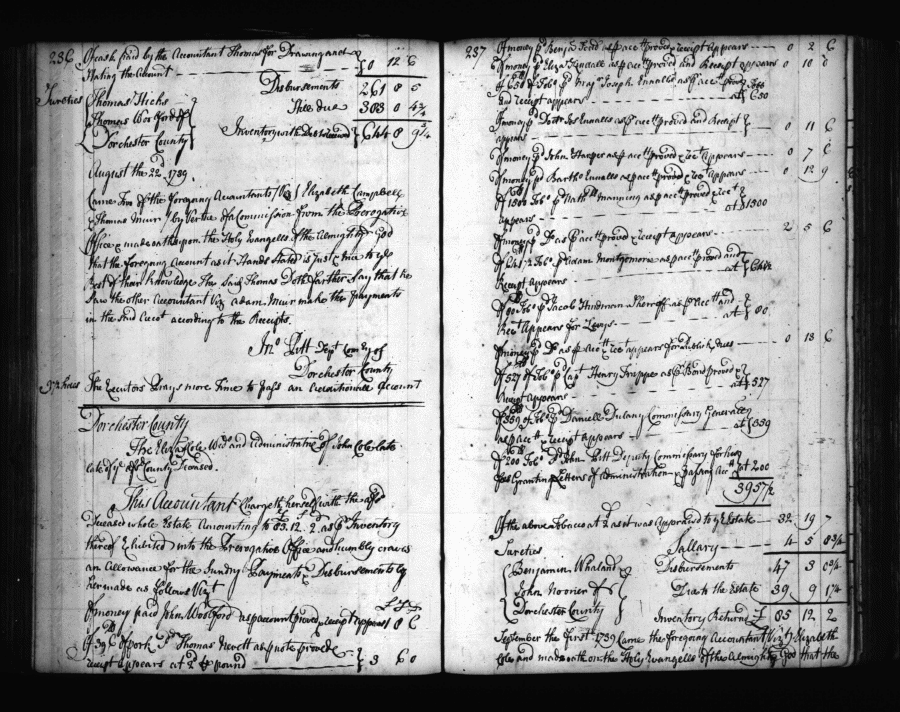 236 Of cash paid by the Accountant Thomas for Drawing and
Stating the Account 0 12 6
Sureties Thomas Hicks Disbursements 261 8 5
Thomas Woolford of Still due 383 0 4 3/4
Dorchester County Inventory with 644 8 9 3/4
August the 22d. 1739.
Came Two of the foregoing Accountants Vizt Elizabeth Campbell
& Thomas Muir by Vertue of a Commission from the Prerogative
Office & made oath upon the Holy Evangells of the Almighty God
that the foregoing account as it stands Stated is Just & true to the
best of their Knowledge the said Thomas Doth farther say that he
saw the other Accountant Viz Adam Muir make the payments
in the said Acct. according to the Receipts.
Jno. Pitt Depty Comry of
Dorchester County
The Executors Prays more Time to pass an Additional Account
Dorchester County
The Eliza Cole Wido and Administratrix of John Cole late
late of ye afd County Deceased.
This Accountant Chargeth herself with the afd
£ S D
Deceased whole Estate Amounting to 85.12.2. as p Inventory
thereof Exhibited into the Prerogative Office and humbly craves
an Allowance for the Sundry Payments & Disbursements by
her made as follows Vizt
£ S D
Of money paid John Woolford as p account proved & receipt appears 1 8 6
Of 396 of pork pd Thomas Nevett as p note proved &
receipt appears at 2d p pound 3 6 0
237 Of money pd Benja Todd as p acct proved & receipt appears 0 2 6
Of money pd Eliza Kendall as p acct proved and Receipt appears 0 10 0
Of 630 of Tobo pd Majr Joseph Ennalls as p acct proved
and receipt appears at 630
Of money pd Doctr Jos Ennalls as p acct proved and Receipt
appears 0 11 6
Of money pd John Harper as p acct proved & rect appears 0 7 6
Of money pd Bartho Ennalls as p acct proved & rect appears 0 12 9
Of 1300 Tobo pd Nathll Manning as p acct proved & rect
appears at 1300
Of money pd Do as p acct proved & receipt appears 2 5 6
Of 641 1/2 Tobo pd Adam Montgomerie as p acct proved and
Receipt appears at 641 1/2
Of 00 Tobo pd Jacob Hindman Sherriff as p acct and
Rect Appears for Levys at 00
Of money pd Do as p acct & rect appears for publick dues 0 18 6
Of 527 of Tobo pd Capt Henry Trippe as p Bond proved &
receipt appears at 527
Of 559 of Tobo pd Daniell Dulany Commissary Generall
as p acct & receipt appears at 559
Of 200 Tobo pd John Pitt Deputy Commissary for his
fees Granting Letters of Administration & passing Acct at 200
3957 1/2
Of the above tobacco at 2d as it was Appraised to ye Estate 32 19 7
Sallary 4 5 8 3/4
Sureties
Benjamin Whaland Disbursements 47 3 0 3/4
John Noorier of Due to the Estate 39 9 1 1/4
Dorchester County Inventory Returned £ 85 12 2
September the first 1739 Came the foregoing Accountant Vizt Elizabeth
Cole and made oath on the Holy Evangells of the Almighty God that the